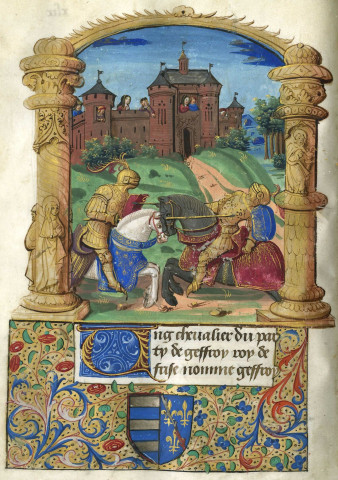 Ung chevalier du par
ty de geffroy roy de
frise nomme geffroy